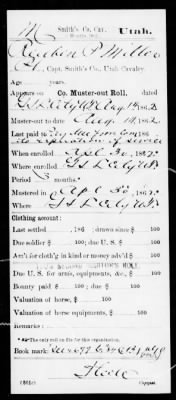 M Smith's Co. Cav. Utah.
Reuben P Miller
Capt. Smith's Co., Utah Cavalry.
Age years.
Appears on Co. Muster-out Roll, dated
G. S. L. City U.T. Aug 14, 186 2.
Muster-out to date Aug. 14, 186 2.
Last paid to
its expiration of service
When enrolled Apl 30, 186 2.
Where G S L City U.T.
Period 3 months.
Mustered in Apl 30, 186 2.
Where G S L City U.T.
Clothing account:
Last settled , 186 ; drawn since $ 100
Due soldier $ 100; due U. S. $ 100
Am't for cloth'g in kind or money adv'd $ 100
Due U. S. for arms, equipments, &c., $ 100
Bounty paid $ 100; due $ 100
Valuation of horse, $ 100
Valuation of horse equipments, $ 100
Remarks:
*Only one roll on file for this organization.
Book mark:
(861c) Copyist.